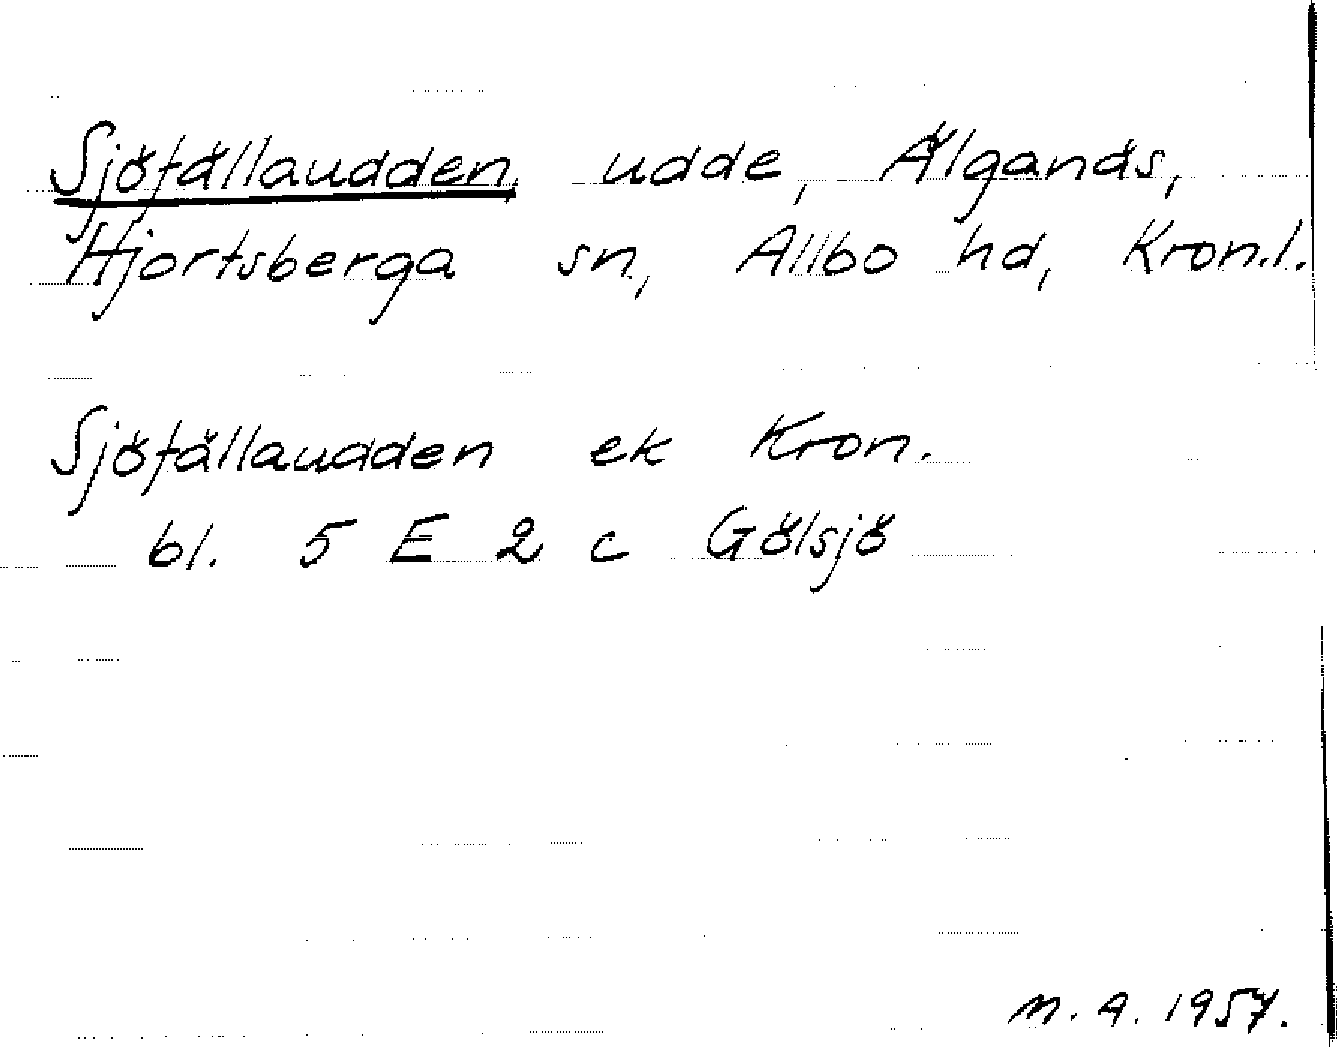 Sjöfällaudden, udde, Älganäs,
Hjortsberga sn, Allbo hd, Kron.l.
Sjöfällaudden ek Kron.
bl. 5 E 2 c Gölsjö
M. A. 1957.